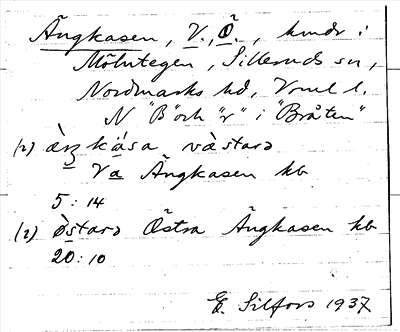 Ängkasen, V., Ö., hmdr i
Mölntegen, Sillerud sn,
Nordmarks hd, Vrml l.
N "B" och "r" i "Bråten"
(2) käsa västarə
Va Ängkasen kb
5:14
(2) östarə Östra Ängkasen kb
20:10
E. Silfors 1937